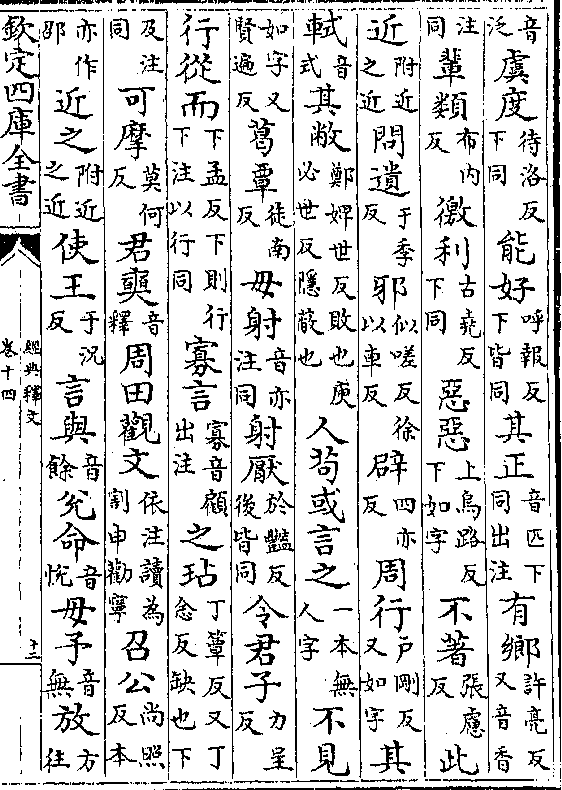 音泛虞度待洛反下同能好呼報反下皆同其正音匹下同出注有鄉許亮反又音香
注同輩類布内反徼利古堯反下同惡惡上烏路反下如字不著張慮反此
近附近之近問遺于季反邪似嗟反徐以車反辟四亦反周行户剛反又如字其
軾音式其敝鄭婢世反敗也庾必世反隱蔽也人苟或言之一本無人字不見
如字又賢遍反葛覃徒南反毋射音亦注同射厭於豔反後皆同令君子力呈反
行從而下孟反下則行下注以行同寡言寡音顧出注之玷丁簟反又丁念反缺也下
及注同可摩莫何反君奭音釋周田觀文依注讀為割申勸寧召公尚照反本
亦作邵近之附近之近使王于況反言與音餘兊命音恱毋予音無放方往
欽定四庫全書
經典釋文
卷十四
十二